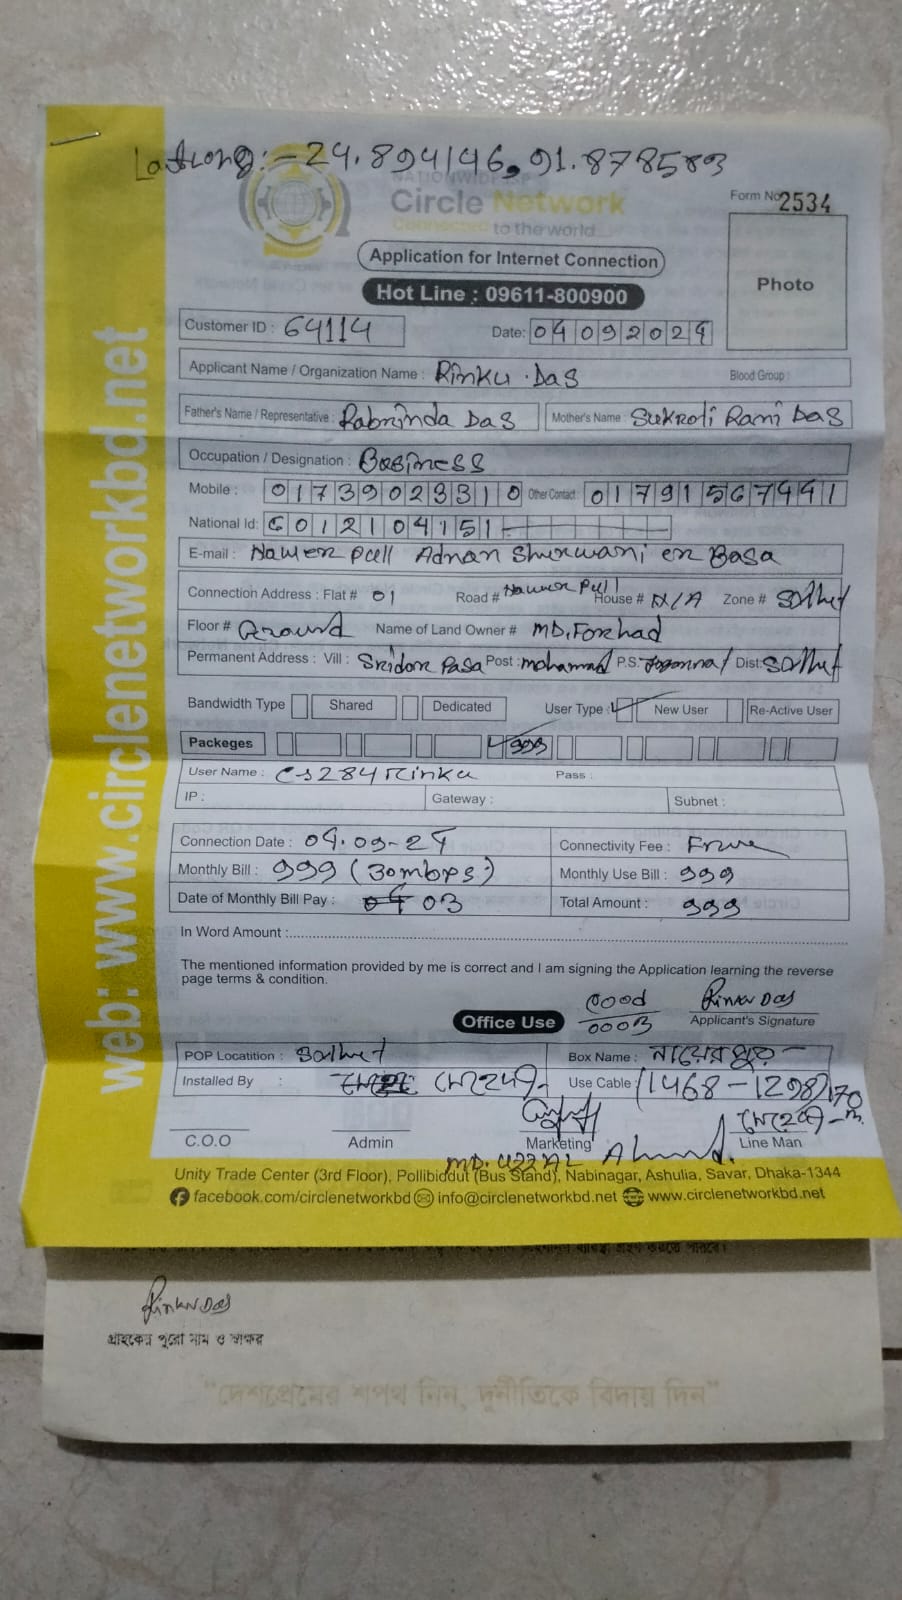 Latlong:- 24.894146, 91.878583
NATIONWIDE ISP
Circle Network
Connected to the world
Form No 2534
Photo
Application for Internet Connection
Hot Line : 09611-800900
Customer ID : 64114 Date: 04092024
Applicant Name / Organization Name : Rinku Das Blood Group :
Father's Name / Representative : Rabrinda Das Mother's Name : Sukroti Rani Das
Occupation / Designation : Business
Mobile : 01739023310 Other Contact : 01791567441
National Id: 6012104151
E-mail : Nawer pull Adnan Sherwani er Basa
Connection Address : Flat # 01 Road # House # N/A Zone # Sylhet
Floor # Ground Name of Land Owner # MD. Forhad
Permanent Address : Vill : Sridor Pasa Post : mohammad P.S: Dist: Sylhet
Bandwidth Type Shared Dedicated User Type : New User Re-Active User
Packeges 999
User Name : cs284rinku Pass :
IP : Gateway : Subnet :
Connection Date : 04.09-24 Connectivity Fee :
Monthly Bill : 999 (30mbps) Monthly Use Bill : 999
Date of Monthly Bill Pay : 03 Total Amount : 999
In Word Amount :
The mentioned information provided by me is correct and I am signing the Application learning the reverse
page terms & condition.
Rinku Das
Office Use 0003 Applicant's Signature
POP Locatition : Sylhet Box Name :
Installed By : মেহেদী Use Cable : (1468-1298) 170
C.O.O Admin Marketing Line Man
Unity Trade Center (3rd Floor), Pollibiddut (Bus Stand), Nabinagar, Ashulia, Savar, Dhaka-1344
facebook.com/circlenetworkbd info@circlenetworkbd.net www.circlenetworkbd.net
web: www.circlenetworkbd.net
Rinku Das
গ্রাহকের পুরো নাম ও স্বাক্ষর
"দেশপ্রেমের শপথ নিন, দুর্নীতিকে বিদায় দিন"